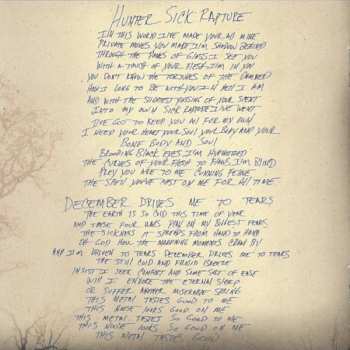 HUNTER SICK RAPTURE
IN THIS WORLD I'VE MADE YOUR ALL MINE
PRIVATE MOVES YOU MAKE I'M SHADOW BEHIND
THROUGH THE PANES OF GLASS I SEE YOU
WITH A TOUCH OF YOUR FLESH I'M IN YOU
YOU DON'T KNOW THE TORTURES OF THE DAMNED
HOW I LONG TO BE WITH YOU IN ALL I AM
AND WITH THE SLIGHTEST PASSING OF YOUR SCENT
INTO MY OWN SICK RAPTURE I'VE WENT
I'VE GOT TO KEEP YOU ALL FOR MY OWN
I NEED YOUR HEART YOUR SOUL YOUR BODY AND YOUR
BONE BODY AND SOUL
BLINDING BLACK EYES I'M HYPNOTIZED
THE CURVES OF YOUR FLESH TO FANS I'M BLIND
PREY YOU ARE TO ME CUNNING FELINE
THE SPELL YOU'VE CAST ON ME FOR ALL TIME
DECEMBER DRIVES ME TO TEARS
THE EARTH IS SO COLD THIS TIME OF YEAR
AND THESE FOUR WALLS PLAY ON MY BIGGEST FEARS
THE SICKNESS IT SPREADS FROM HAND TO HAND
OH GOD HOW THE MADDENING MOMENTS CRAWL BY
AND I'M DRIVEN TO TEARS DECEMBER DRIVES ME TO TEARS
THE STILL COLD AND FRIGID BREEZE
INSIST I SEEK COMFORT AND SOME SORT OF EASE
WILL I ENDURE THE ETERNAL SLEEP
OR SUFFER ANOTHER MISERABLE SPRING
THIS METAL TASTES GOOD TO ME
THIS NOOSE LOOKS GOOD ON ME
THIS METAL TASTES SO GOOD TO ME
THIS NOOSE LOOKS SO GOOD ON ME
THIS METAL TASTES GOOD